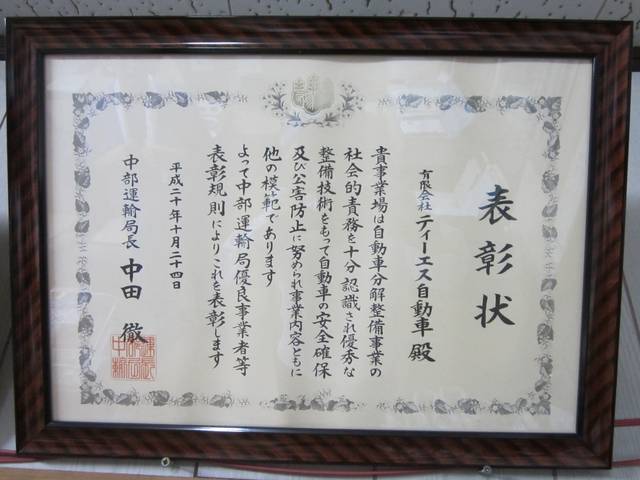 表彰状
有限会社 ティーエス自動車 殿
貴事業場は自動車分解整備事業の
社会的責務を十分認識され優秀な
整備技術をもって自動車の安全確保
及び公害防止に努められ事業内容ともに
他の模範であります
よって中部運輸局優良事業者等
表彰規則によりこれを表彰します
平成二十年十月二十四日
中部運輸局長 中田 徹